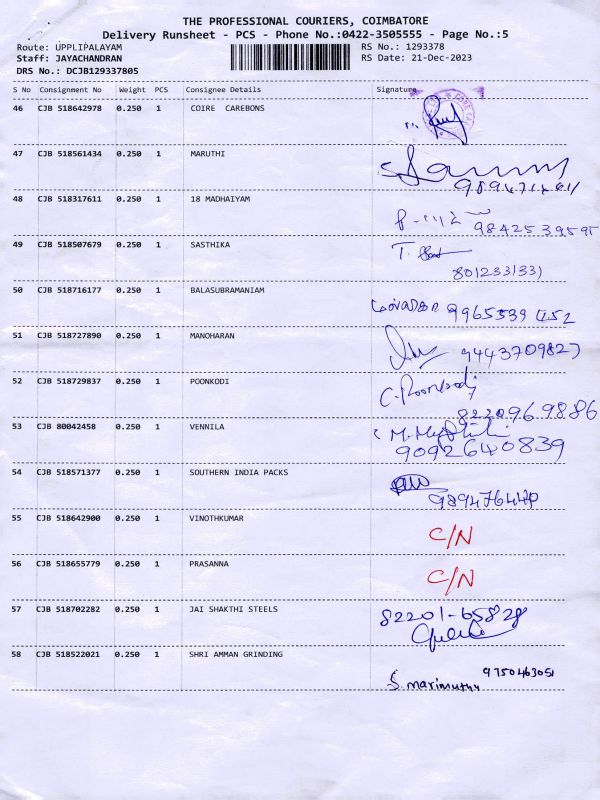 THE PROFESSIONAL COURIERS, COIMBATORE
Delivery Runsheet - PCS - Phone No.:0422-3505555 - Page No.:5
Route: UPPLIPALAYAM RS No.: 1293378
Staff: JAYACHANDRAN RS Date: 21-Dec-2023
DRS No.: DCJB129337805
S No Consignment No Weight PCS Consignee Details Signature
46 CJB 518642978 0.250 1 COIRE CAREBONS
47 CJB 518561434 0.250 1 MARUTHI
48 CJB 518317611 0.250 1 18 MADHAIYAM
9842539595
49 CJB 518507679 0.250 1 SASTHIKA T.
801233133)
50 CJB 518716177 0.250 1 BALASUBRAMANIAM
9965539452
51 CJB 518727890 0.250 1 MANOHARAN
9443709827
52 CJB 518729837 0.250 1 POONKODI C. Poonkodi
8220969886
53 CJB 80042458 0.250 1 VENNILA
9092640839
54 CJB 518571377 0.250 1 SOUTHERN INDIA PACKS
55 CJB 518642900 0.250 1 VINOTHKUMAR C/N
56 CJB 518655779 0.250 1 PRASANNA C/N
57 CJB 518702282 0.250 1 JAI SHAKTHI STEELS 82201-65828
58 CJB 518522021 0.250 1 SHRI AMMAN GRINDING
9750463051
S. marimuthu